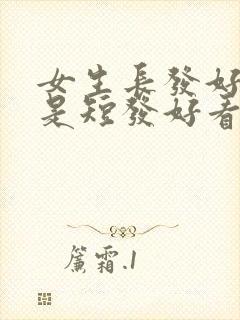 女生長發好
是短發好看
簾霜.1